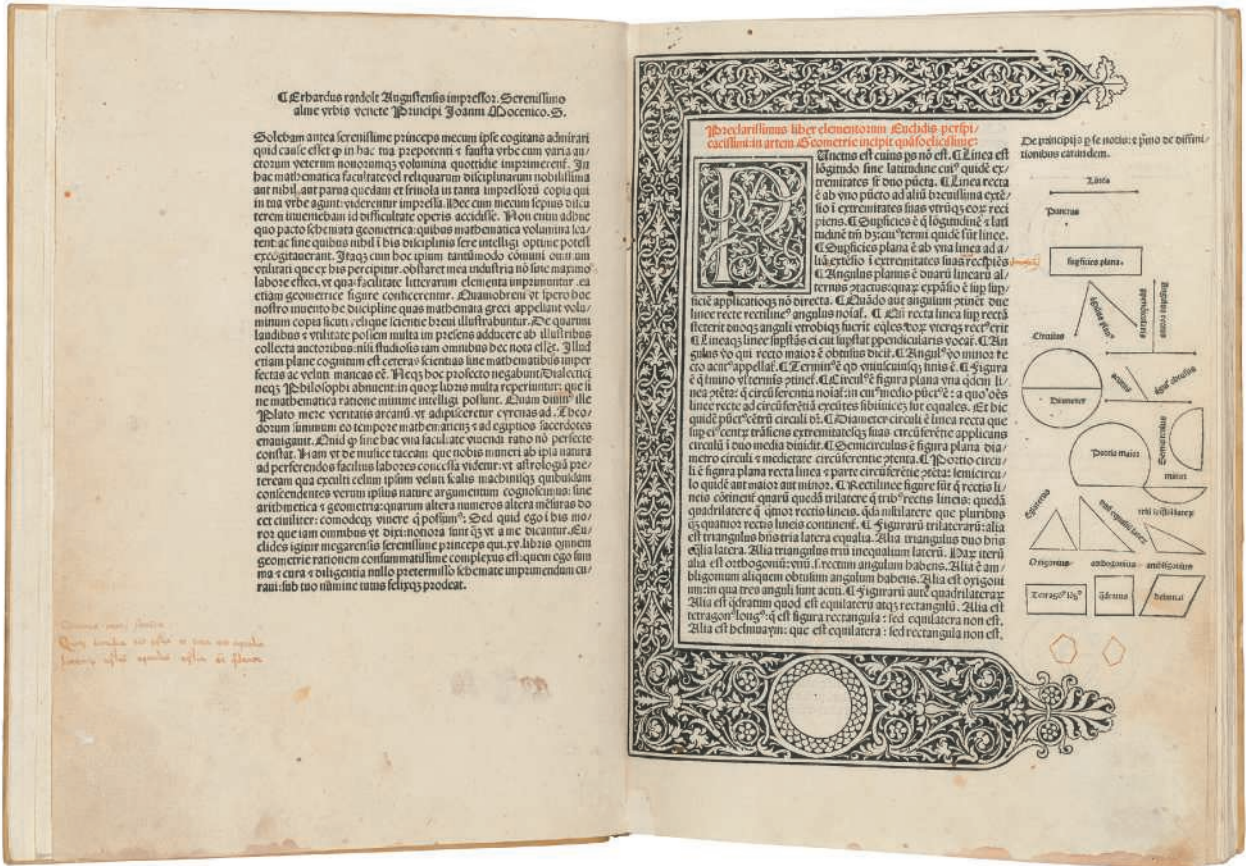 ¶ Erhardus ratdolt Augustensis impressor. Serenissimo
alme vrbis venete Principi Joanni Mocenico. S.
Solebam antea serenissime princeps mecum ipse cogitans admirari
quid cause esset ꝙ in hac tua prepotenti ⁊ fausta vrbe cum varia au/
ctorum veterum nouorumqꝫ volumina quottidie imprimerent̉. In
hac mathematica facultate vel reliquarum disciplinarum nobilissima
aut nihil aut parua quedam et friuola in tanta impressorũ copia qui
in tua vrbe agunt: viderentur impressa. Hec cum mecum sepius discu
terem inueniebam id difficultate operis accidisse. Non enim adhuc
quo pacto schemata geometrica: quibus mathematica volumina sca/
tent: ac sine quibus nihil ĩ his disciplinis fere intelligi optime potest
excogitauerant. Itaqꝫ cum hoc ipsum tantũmodo cõmuni omnium
vtilitati que ex his percipitur. obstaret mea industria nõ sine maximo
labore effeci. vt qua facilitate litterarum elementa imprimuntur. ea
etiam geometrice figure conficerentur. Quamobrem vt spero hoc
nostro inuento he discipline quas mathemata greci appellant volu/
minum copia sicuti relique scientie breui illustrabuntur. De quarum
laudibus ⁊ vtilitate possem multa im presens adducere ab illustribus
collecta auctoribus: nisi studiosis iam omnibus hec nota essẽt. Illud
etiam plane cognitum est ceteras scientias sine mathematibus imper
fectas ac veluti mancas eẽ. Neqꝫ hoc profecto negabunt Dialectici
neqꝫ Philosophi abnuent: in quorꝫ libris multa reperiuntur: que si
ne mathematica ratione minime intelligi possunt. Quam diuinꝰ ille
Plato mere veritatis arcanũ. vt adipisceretur cyrenas ad. Theo/
dorum summum eo tempore mathematicũ ⁊ ad egiptios sacerdotes
enauigauit. Quid ꝙ sine hac vna facultate viuendi ratio nõ perfecte
constat. Nam vt de musice taceam que nobis muneri ab ipsa natura
ad perferendos facilius labores concessa videtur: vt astrologiã pre/
teream qua exculti celum ipsum veluti scalis machinisqꝫ quibusdam
conscendentes verum ipsius nature argumentum cognoscimus: sine
arithmetica ⁊ geometria: quarum altera numeros altera mẽsuras do
cet ciuiliter: comodeqꝫ viuere q̃ possumꝰ: Sed quid ego ĩ his mo/
ror que iam omnibus vt dixi: notiora sunt q̃ꝫ vt a me dicantur. Eu/
clides igitur megarensis serenissime princeps qui. xv. libris omnem
geometrie rationem consummatissime complexus est: quem ego sum
ma ⁊ cura ⁊ diligentia nullo pretermisso schemate imprimendum cu/
raui: sub tuo nũmine tutus felixqꝫ prodeat.
Preclarissimus liber elementorum Euclidis perspi/
cacissimi: in artem Geometrie incipit quãfoelicissime:
Punctus est cuius ps nõ est. ¶ Linea est
lõgitudo sine latitudine cuiꝰ quidẽ ex/
tremitates st̃ duo pũcta. ¶ Linea recta
ẽ ab vno pũcto ad aliũ breuissima extẽ/
sio ĩ extremitates suas vtrũqꝫ eorꝫ reci
piens. ¶ Supficies ẽ q̃ lõgitudinẽ ⁊ lati
tudinẽ tm̃ hꝫ: cuiꝰ termi quidẽ sũt linee.
¶ Supficies plana ẽ ab vna linea ad a/
liã extẽsio ĩ extremitates suas recipiẽs
¶ Angulus planus ẽ duarũ linearũ al/
ternus ꝯtactus: quarꝫ expãsio ẽ sup sup/
ficiẽ applicatioqꝫ nõ directa. ¶ Quãdo aut angulum ꝯtinẽt due
linee recte rectilineꝰ angulus noiat̃. ¶ Qñ recta linea sup rectã
steterit duoqꝫ anguli vtrobiqꝫ fuerĩt eq̃les: eorꝫ vterqꝫ rectꝰ erit
¶ Lineaqꝫ linee supstãs ei cui supstat ppendicularis vocat̃. ¶ An
gulus vo qui recto maior ẽ obtusus dicit̃. ¶ Angulꝰ vo minor re
cto acutꝰ appellat̃. ¶ Terminꝰ ẽ qđ vniuscuiusqꝫ finis ẽ. ¶ Figura
ẽ q̃ tmino vl terminis ꝯtinet̃. ¶ Circulꝰ ẽ figura plana vna q̃dem li/
nea ꝯtẽta: q̃ circũferentia noiat̃: in cuiꝰ medio pũctꝰ ẽ: a quo oẽs
linee recte ad circũferẽtiã exeũtes sibiinuicẽ sut equales. Et hic
quidẽ pũctꝰ cẽtrũ circuli dr̃. ¶ Diameter circuli ẽ linea recta que
sup eiꝰ centrꝫ trãsiens extremitatesqꝫ suas circũferẽtie applicans
circulũ ĩ duo media diuidit. ¶ Semicirculus ẽ figura plana dia/
metro circuli ⁊ medietate circũferentie ꝯtenta. ¶ Portio circu/
li ẽ figura plana recta linea ⁊ parte circũferẽtie ꝯtẽta: semicircu/
lo quidẽ aut maior aut minor. ¶ Rectilinee figure sũt q̃ rectis li/
neis cõtinent̃ quarũ quedã trilatere q̃ tribꝰ rectis lineis: quedã
quadrilatere q̃ q̃tuor rectis lineis. q̃dã mltilatere que pluribus
q̃ꝫ quatuor rectis lineis continent̃. ¶ Figurarũ trilaterarũ: alia
est triangulus hñs tria latera equalia. Alia triangulus duo hñs
eq̃lia latera. Alia triangulus triũ inequalium laterũ. Harꝫ iterũ
alia est orthogoniũ: vnũ. s. rectum angulum habens. Alia ẽ am/
bligonium aliquem obtusum angulum habens. Alia est oxigoni
um: in qua tres anguli sunt acuti. ¶ Figurarũ autẽ quadrilaterarꝫ
Alia est q̃dratum quod est equilaterũ atqꝫ rectangulũ. Alia est
tetragonꝰ longꝰ: q̃ est figura rectangula: sed equilatera non est.
Alia est helmuaym: que est equilatera: sed rectangula non est.
De principijs p se notis: ⁊ pmo de diffini/
tionibus earundem.
Linea
Punctus
supficies plana.
Circulus
Diameter
acutus
Portio maior
Semicirculus
minor
Oxigonius
orthogonius
ambligonius
Tetragonꝰ lõgꝰ
q̃dratus
helmuaym